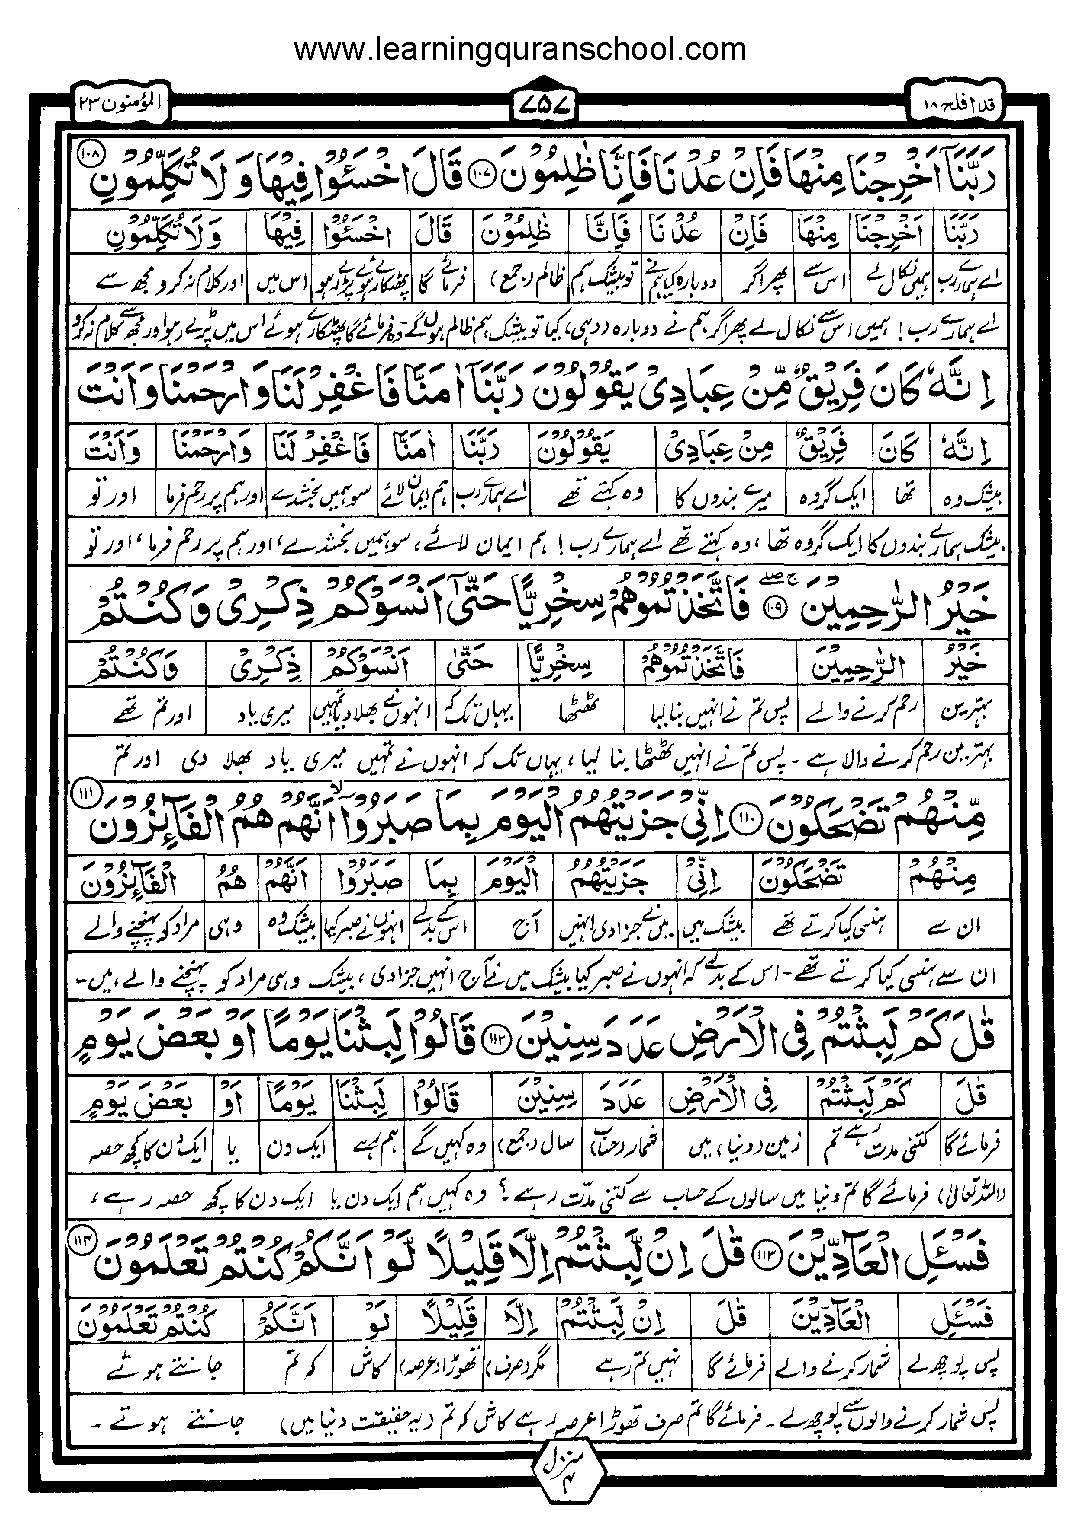 www.learningquranschool.com
قد افلح ۱۸
۷۵۷
المؤمنون ۲۳
رَبَّنَآ اَخْرِجْنَا مِنْهَا فَاِنْ عُدْنَا فَاِنَّا ظٰلِمُوْنَ ۱۰۷ قَالَ اخْسَـُٔوْا فِيْهَا وَلَا تُكَلِّمُوْنِ ۱۰۸
رَبَّنَآ اَخْرِجْنَا مِنْهَا فَاِنْ عُدْنَا فَاِنَّا ظٰلِمُوْنَ قَالَ اخْسَـُٔوْا فِيْهَا وَلَا تُكَلِّمُوْنِ
اے ہمارے رب ہمیں نکال لے اس سے پھر اگر دوبارہ کیا ہم نے تو بیشک ہم ظالم (جمع) فرمائے گا پھٹکارے ہوئے پڑے رہو اس میں اور کلام نہ کرو مجھ سے
اے ہمارے رب! ہمیں اس سے نکال لے پھر اگر ہم نے دوبارہ (وہی) کیا تو بیشک ہم ظالم ہوں گے وہ فرمائے گا پھٹکارے ہوئے اس میں پڑے رہو اور مجھ سے کلام نہ کرو
اِنَّهٗ كَانَ فَرِيْقٌ مِّنْ عِبَادِيْ يَقُوْلُوْنَ رَبَّنَآ اٰمَنَّا فَاغْفِرْ لَنَا وَارْحَمْنَا وَاَنْتَ
اِنَّهٗ كَانَ فَرِيْقٌ مِنْ عِبَادِيْ يَقُوْلُوْنَ رَبَّنَآ اٰمَنَّا فَاغْفِرْ لَنَا وَارْحَمْنَا وَاَنْتَ
بیشک وہ تھا ایک گروہ میرے بندوں کا وہ کہتے تھے اے ہمارے رب ہم ایمان لائے سو ہمیں بخشدے اور ہم پر رحم فرما اور تو
بیشک ہمارے بندوں کا ایک گروہ تھا، وہ کہتے تھے اے ہمارے رب! ہم ایمان لائے، سو ہمیں بخشدے، اور ہم پر رحم فرما، اور تو
خَيْرُ الرّٰحِمِيْنَ ۱۰۹ فَاتَّخَذْتُمُوْهُمْ سِخْرِيًّا حَتّٰٓى اَنْسَوْكُمْ ذِكْرِيْ وَكُنْتُمْ
خَيْرُ الرّٰحِمِيْنَ فَاتَّخَذْتُمُوْهُمْ سِخْرِيًّا حَتّٰى اَنْسَوْكُمْ ذِكْرِيْ وَكُنْتُمْ
بہترین رحم کرنے والے پس تم نے انہیں بنا لیا ٹھٹھا یہاں تک کہ انہوں نے بھلا دیا تمہیں میری یاد اور تم تھے
بہترین رحم کرنے والا ہے۔ پس تم نے انہیں ٹھٹھا بنا لیا، یہاں تک کہ انہوں نے تمہیں میری یاد بھلا دی اور تم
مِّنْهُمْ تَضْحَكُوْنَ ۱۱۰ اِنِّيْ جَزَيْتُهُمُ الْيَوْمَ بِمَا صَبَرُوْٓا اَنَّهُمْ هُمُ الْفَآئِزُوْنَ ۱۱۱
مِنْهُمْ تَضْحَكُوْنَ اِنِّيْ جَزَيْتُهُمُ الْيَوْمَ بِمَا صَبَرُوْٓا اَنَّهُمْ هُمُ الْفَآئِزُوْنَ
ان سے ہنسی کیا کرتے تھے بیشک میں میں نے جزا دی انہیں آج اس کے بدلے انہوں نے صبر کیا بیشک وہ وہی مراد کو پہنچنے والے
ان سے ہنسی کیا کرتے تھے۔ اس کے بدلے کہ انہوں نے صبر کیا بیشک میں نے آج انہیں جزا دی، بیشک وہی مراد کو پہنچنے والے ہیں۔
قٰلَ كَمْ لَبِثْتُمْ فِي الْاَرْضِ عَدَدَ سِنِيْنَ ۱۱۲ قَالُوْا لَبِثْنَا يَوْمًا اَوْ بَعْضَ يَوْمٍ
قٰلَ كَمْ لَبِثْتُمْ فِي الْاَرْضِ عَدَدَ سِنِيْنَ قَالُوْا لَبِثْنَا يَوْمًا اَوْ بَعْضَ يَوْمٍ
فرمائے گا کتنی مدت رہے تم زمین (دنیا) میں شمار (حساب) سال (جمع) وہ کہیں گے ہم رہے ایک دن یا ایک دن کا کچھ حصہ
(اللہ تعالیٰ) فرمائے گا تم دنیا میں سالوں کے حساب سے کتنی مدت رہے؟ وہ کہیں ہم ایک دن یا ایک دن کا کچھ حصہ رہے،
فَسْـَٔلِ الْعَآدِّيْنَ ۱۱۳ قٰلَ اِنْ لَّبِثْتُمْ اِلَّا قَلِيْلًا لَّوْ اَنَّكُمْ كُنْتُمْ تَعْلَمُوْنَ ۱۱۴
فَسْـَٔلِ الْعَآدِّيْنَ قٰلَ اِنْ لَّبِثْتُمْ اِلَّا قَلِيْلًا لَوْ اَنَّكُمْ كُنْتُمْ تَعْلَمُوْنَ
پس پوچھ لے شمار کرنے والے فرمائے گا نہیں تم رہے مگر (صرف) تھوڑا (عرصہ) کاش کہ تم جانتے ہوتے
پس شمار کرنے والوں سے پوچھ لے۔ فرمائے گا تم صرف تھوڑا عرصہ رہے کاش کہ تم (یہ حقیقت دنیا میں) جانتے ہوتے۔
منزل ۴